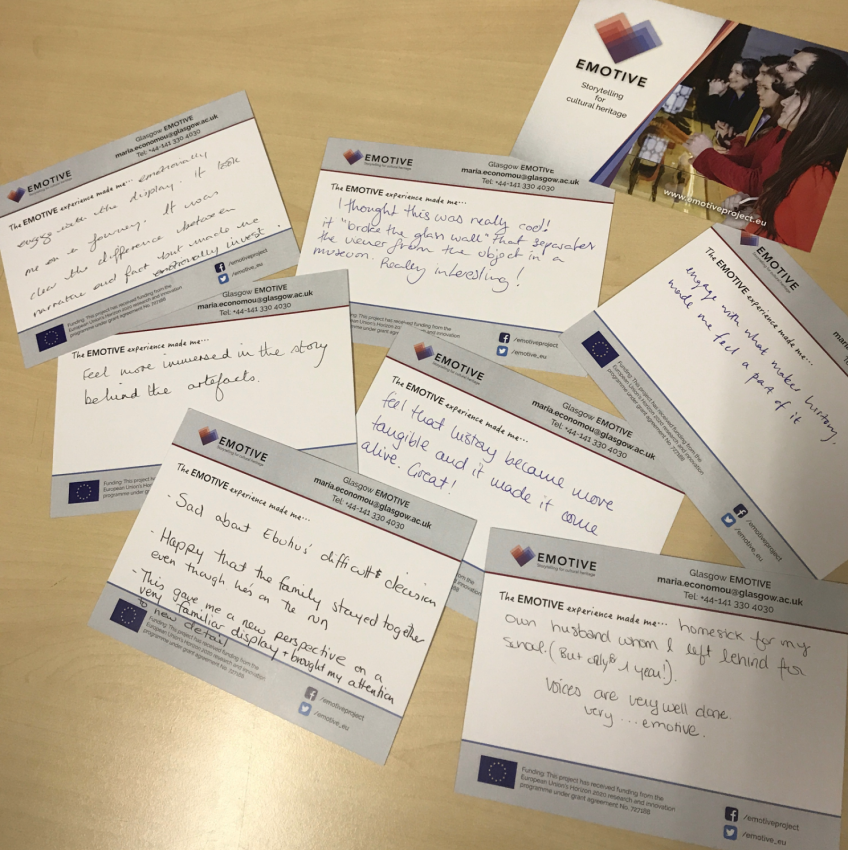 EMOTIVE
Storytelling
for
cultural heritage
www.emotiveproject.eu
EMOTIVE
Storytelling for cultural heritage
Glasgow EMOTIVE
maria.economou@glasgow.ac.uk
Tel: +44-141 330 4030
The EMOTIVE experience made me... emotionally
engage with the display. it took
me on a journey. It was
clear the difference between
narrative and fact but made me
emotionally invest.
Funding: This project has received funding from the
European Union's Horizon 2020 research and innovation
programme under grant agreement No. 727188
/emotiveproject
/emotive_eu
EMOTIVE
Storytelling for cultural heritage
Glasgow EMOTIVE
maria.economou@glasgow.ac.uk
Tel: +44-141 330 4030
The EMOTIVE experience made me...
I thought this was really cool!
it "broke the glass wall" that separates
the viewer from the object in a
museum. Really interesting!
has received funding from the
Horizon 2020 research and innovation
/emotiveproject
/emotive_eu
EMOTIVE
The EMOTIVE experience made me...
engage with what makes history,
made me feel a part of it
Funding: This project has received funding from the
European Union's Horizon 2020 research and innovation
programme under grant agreement No. 727188
/emotiveproject
/emotive_eu
Glasgow EMOTIVE
maria.economou@glasgow.ac.uk
Tel: +44-141 330 4030
The EMOTIVE experience made me...
Feel more immersed in the story
behind the artefacts.
Funding: This project
European Union's Hor
programme under gra
EMOTIVE
Storytelling for cultural heritage
Glasgow EMOTIVE
maria.economou@glasgow.ac.uk
Tel: +44-141 330 4030
The EMOTIVE experience made me...
feel that history became more
tangible and it made it come
alive. Great!
EMOTIVE
Storytelling for cultural heritage
Glasgow EMOTIVE
maria.economou@glasgow.ac.uk
Tel: +44-141 330 4030
The EMOTIVE experience made me...
- Sad about Ebuhus' difficult decision
- Happy that the family stayed together
even though he's on the run
- This gave me a new perspective on a
very familiar display + brought my attention
to new detail
Funding: This project has received funding from the
European Union's Horizon 2020 research and innovation
programme under grant agreement No. 727188
/emotiveproject
/emotive_eu
EMOTIVE
Storytelling for cultural heritage
Glasgow EMOTIVE
maria.economou@glasgow.ac.uk
Tel: +44-141 330 4030
The EMOTIVE experience made me... homesick for my
own husband whom I left behind for
school. (But only 1 year!).
Voices are very well done.
very ... emotive.
Funding: This project has received funding from the
European Union's Horizon 2020 research and innovation
programme under grant agreement No. 727188
/emotiveproject
/emotive_eu